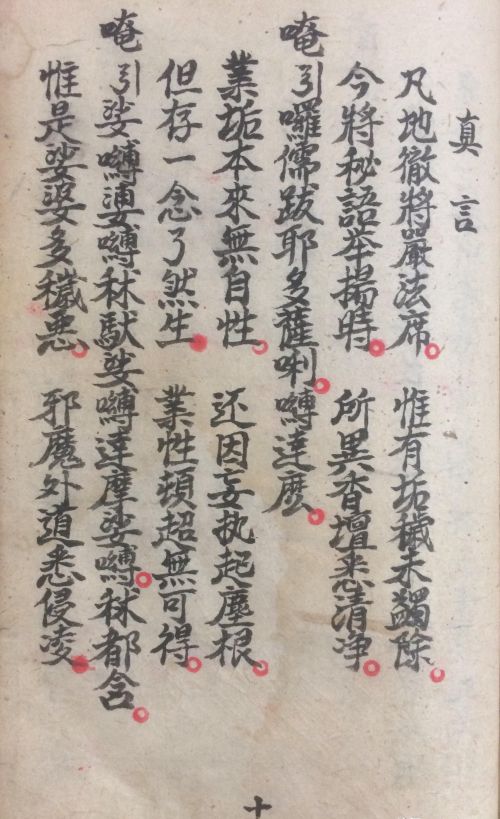 真言
凡地徹將嚴法席 惟有垢穢未蠲除
今將秘語举揚時 所異香壇悉清净
唵引囉儒跋耶多薩唎嚩達麽
業垢本來無自性 还因妄执起塵根
但存一念了然生 業性頓超無可得
唵引娑嚩婆嚩秫馱娑嚩達摩娑嚩秫都含
惟是娑婆多穢恶 邪魔外道悉侵凌
十